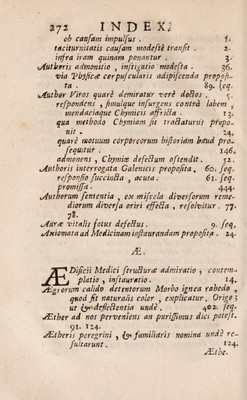 272 INDEX.
ob causam impulsus. 1.
taciturnitatis causam modestè transit. 2.
infra iram quinam ponantur. 3.
Authoris admonitio, instigatio modesta. 36.
via Physicæ corpuscularis adipiscenda proposita. 89. seq.
Author Viros quarè demiratur verè doctos. 5.
respondens, simulque insurgens contrà labem,
mendaciaque Chymicis afficta. 13.
qua methodo Chymiam sit tractaturus proponit. 24.
quarè motuum corporeorum historiam haud prosequutur. 146.
admonens, Chymiæ defectum ostendit. 32.
Authoris interrogata Galenicis proposita. 60. seq.
responsio succincta, acuta. 61. seq.
promissa. 444.
Authorum sententia, ex miscela diversorum remediorum
diversa oriri effecta, resolvitur. 77.
78.
Auræ vitalis fotus defectus. 9. seq.
Axiomata ad Medicinam instaurandam proposita. 24.
Æ.
ÆDificii Medici structuræ admiratio, contemplatio,
instauratio. 14.
Ægrorum calido detentorum Morbo ignea rabedo,
quod sit naturalis color, explicatur. Origo
ut & deflectentia undè. 402. seq.
Æther ad nos perveniens an purissimus dici potest.
91. 124.
Ætheris peregrini, & familiaris nomina undè resultarunt. 124.
Æthe.